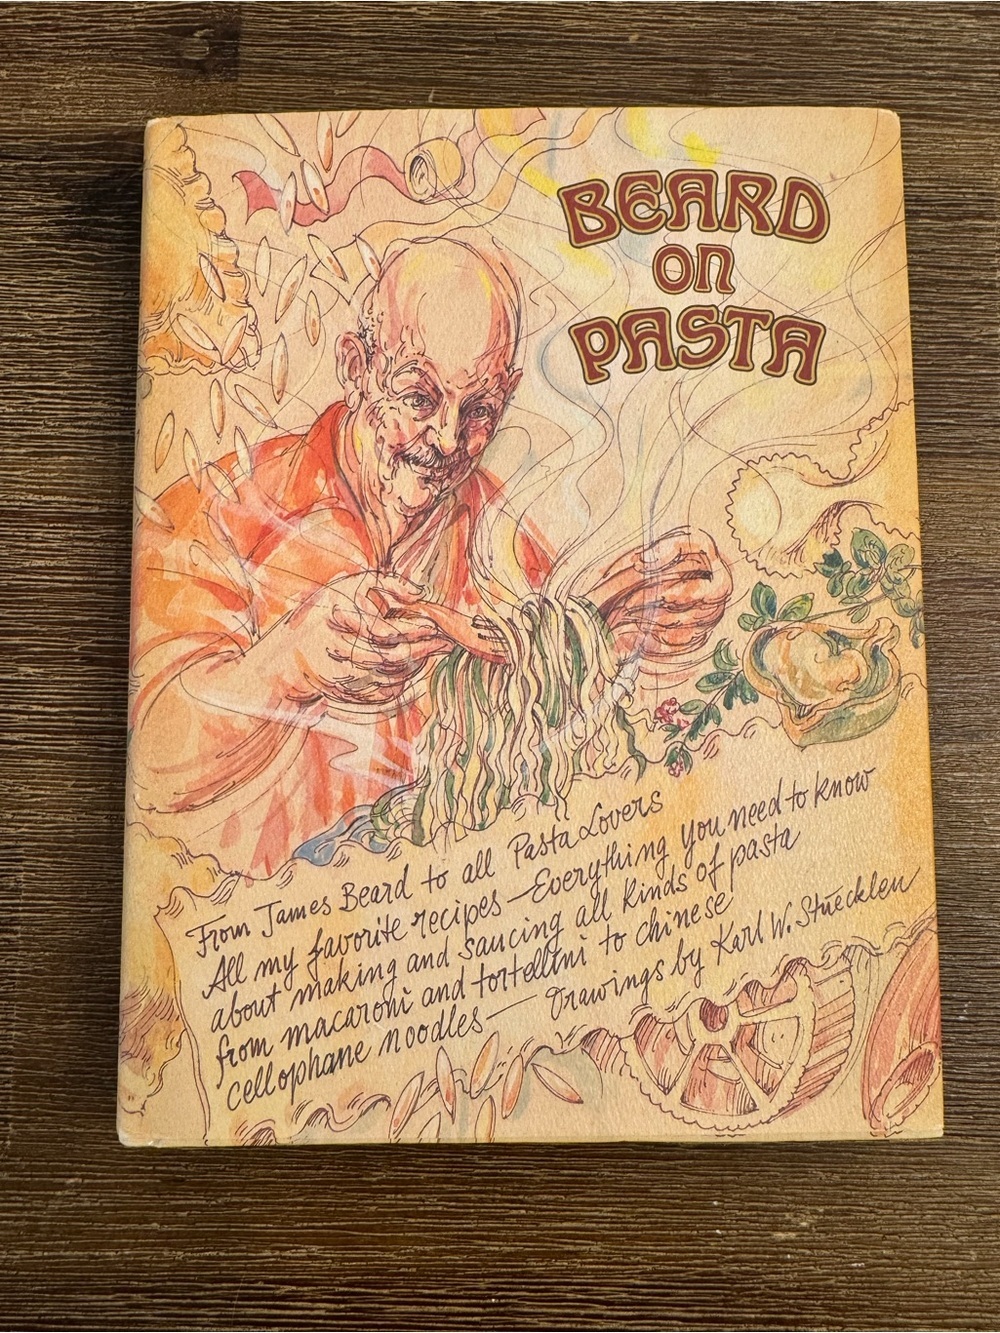 BEARD
ON
PASTA
From James Beard to all Pasta Lovers
All my favorite recipes—Everything you need to know
about making and saucing all kinds of pasta
from macaroni and tortellini to chinese
cellophane noodles— Drawings by Karl W. Stuecklen